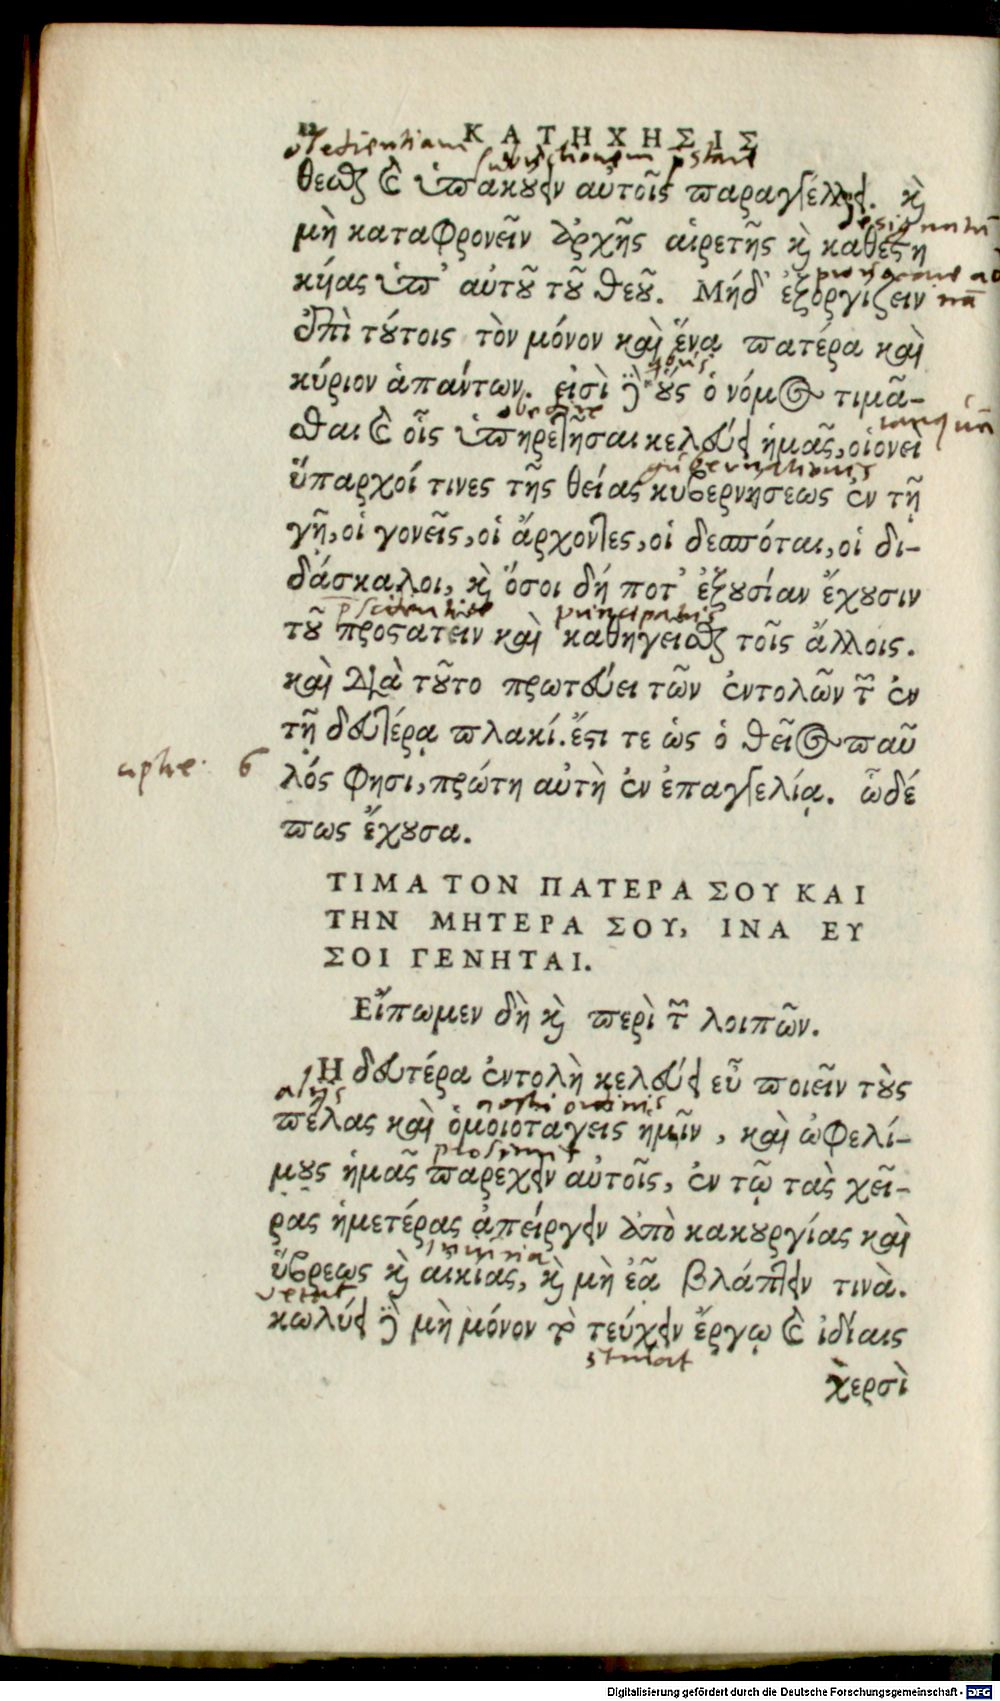 ΚΑΤΗΧΗΣΙΣ
obedientiam
θεσθαι καὶ ὑπακούειν αὐτοῖς παραγγέλλει. καὶ
μὴ καταφρονεῖν ἀρχῆς αἱρετῆς καὶ καθεστη
κυίας ὑπ' αὐτοῦ τοῦ θεοῦ. Μήδ' ἐξοργίζειν
ἐπὶ τούτοις τὸν μόνον καὶ ἕνα πατέρα καὶ
κύριον ἁπάντων. εἰσὶ δὲ οὓς ὁ νόμος τιμᾶ-
σθαι καὶ οἷς ὑπηρετῆσαι κελεύει ἡμᾶς, οἱονεὶ
gubernationis
ὕπαρχοί τινες τῆς θείας κυβερνήσεως ἐν τῇ
γῇ, οἱ γονεῖς, οἱ ἄρχοντες, οἱ δεσπόται, οἱ δι-
δάσκαλοι, καὶ ὅσοι δή ποτ' ἐξουσίαν ἔχουσιν
principatus
τοῦ προστατεῖν καὶ καθηγεῖσθαι τοῖς ἄλλοις.
καὶ διὰ τοῦτο πρωτεύει τῶν ἐντολῶν τῶν ἐν
τῇ δευτέρᾳ πλακί. ἔστι τε ὡς ὁ θεῖος παῦ
ephe. 6
λός φησι, πρώτη αὐτὴ ἐν ἐπαγγελίᾳ. ὧδέ
πως ἔχουσα.
ΤΙΜΑ ΤΟΝ ΠΑΤΕΡΑ ΣΟΥ ΚΑΙ
ΤΗΝ ΜΗΤΕΡΑ ΣΟΥ, ΙΝΑ ΕΥ
ΣΟΙ ΓΕΝΗΤΑΙ.
Εἴπωμεν δὴ καὶ περὶ τῶν λοιπῶν.
Ἡ δευτέρα ἐντολὴ κελεύει εὖ ποιεῖν τοὺς
nostri ordinis
πέλας καὶ ὁμοιοταγεῖς ἡμῖν, καὶ ὠφελί-
μους ἡμᾶς παρέχειν αὐτοῖς, ἐν τῷ τὰς χεῖ-
ρας ἡμετέρας ἀπείργειν ἀπὸ κακουργίας καὶ
iniuria
ὕβρεως καὶ αἰκίας, καὶ μὴ ἐᾶν βλάπτειν τινὰ.
vetat
κωλύει δὲ μὴ μόνον τὸ τεύχειν ἔργῳ καὶ ἰδίαις
χερσὶ
Digitalisierung gefördert durch die Deutsche Forschungsgemeinschaft - DFG